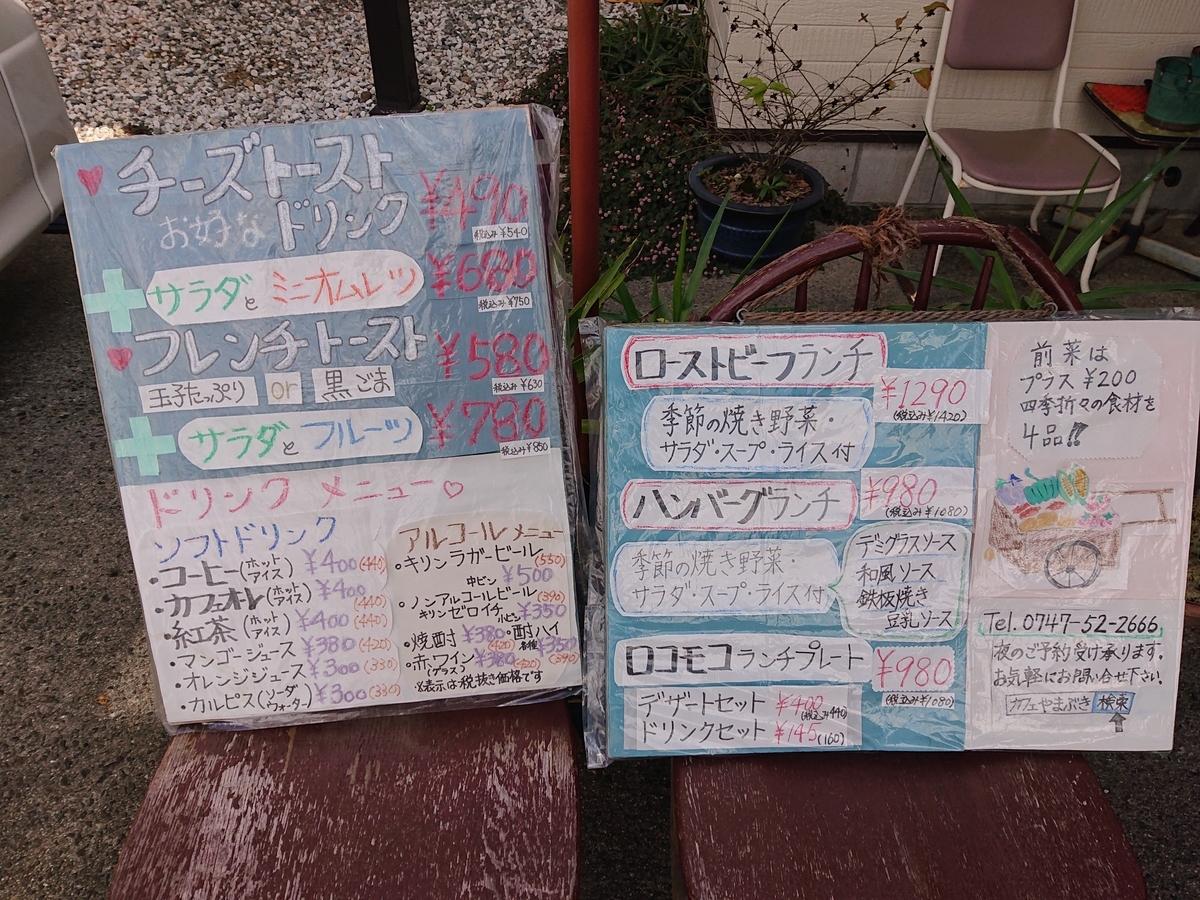 チーズトースト
お好なドリンク
¥490
税込み¥540
サラダとミニオムレツ
¥680
税込み¥750
フレンチトースト
¥580
税込み¥630
玉子たっぷり or 黒ごま
サラダとフルーツ
¥780
税込み¥850
ドリンクメニュー♡
ソフトドリンク
・コーヒー(ホットアイス) ¥400(440)
・カフェオレ(ホットアイス) ¥400(440)
・紅茶(ホットアイス) ¥400(440)
・マンゴージュース ¥380(420)
・オレンジジュース ¥300(330)
・カルピス(ソーダウォーター) ¥300(330)
アルコールメニュー
・キリンラガービール(550)
中ビン ¥500
・ノンアルコールビール(390)
キリンゼロイチ 小ビン ¥350
・焼酎 ¥380(420)・酎ハイ各種 ¥350(390)
・赤ワイン(グラス) ¥380(420)
※表示は税抜き価格です
ローストビーフランチ
¥1290
(税込み¥1420)
季節の焼き野菜・
サラダ・スープ・ライス付
ハンバーグランチ
¥980
(税込み¥1080)
季節の焼き野菜・
サラダ・スープ・ライス付
デミグラスソース
和風ソース
鉄板焼き
豆乳ソース
ロコモコランチプレート
¥980
(税込み¥1080)
デザートセット ¥400(税込み440)
ドリンクセット ¥145(160)
前菜は
プラス¥200
四季折々の食材を
4品!!
Tel.0747-52-2666
夜のご予約受け承ります。
お気軽にお問い合せ下さい。
カフェやまぶき 検索